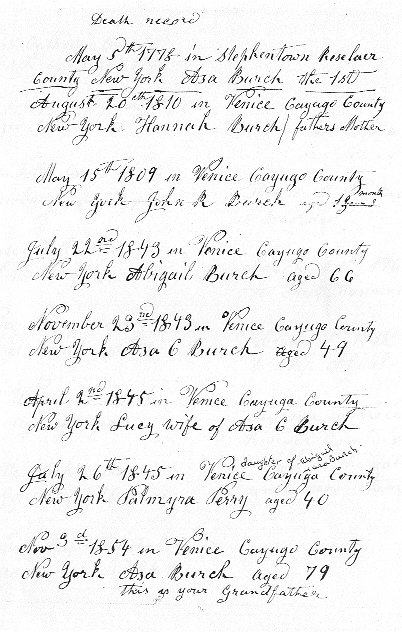 Death record
May 5th 1778 in Stephentown Reselaer
County New York Asa Burch the 1st
August 20th 1810 in Venice Cayugo County
New York Hannah Burch / fathers Mother
May 15th 1809 in Venice Cayugo County
New York John R Burch aged 1 month
July 22nd 1843 in Venice Cayugo County
New York Abigail Burch aged 66
November 23nd 1843 in Venice Cayugo County
New York Asa C Burch aged 49
April 2nd 1845 in Venice Cayuga County
New York Lucy wife of Asa C Burch
daughter of Abigail
July 26th 1845 in Venice Cayuga County
New York Palmyra Perry aged 40
Nov 3d 1854 in Venice Cayugo County
New York Asa Burch aged 79
this is your Grandfather